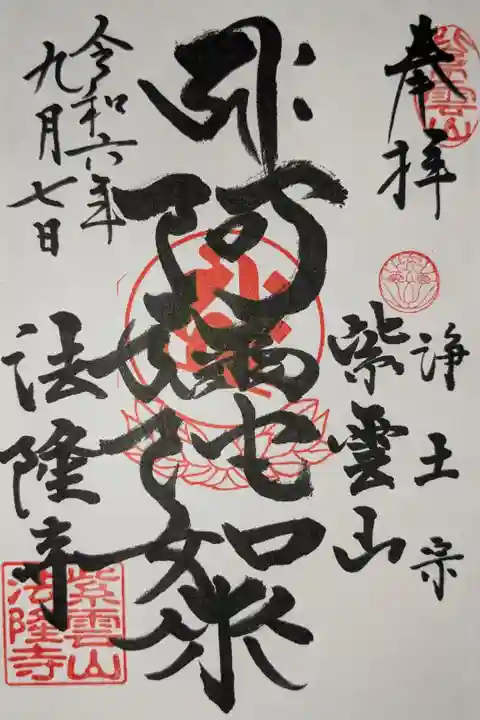 奉拝
紫雲山
浄土宗
紫雲山
阿弥陀如来
令和六年
九月七日
法隆寺
紫雲山
法隆寺